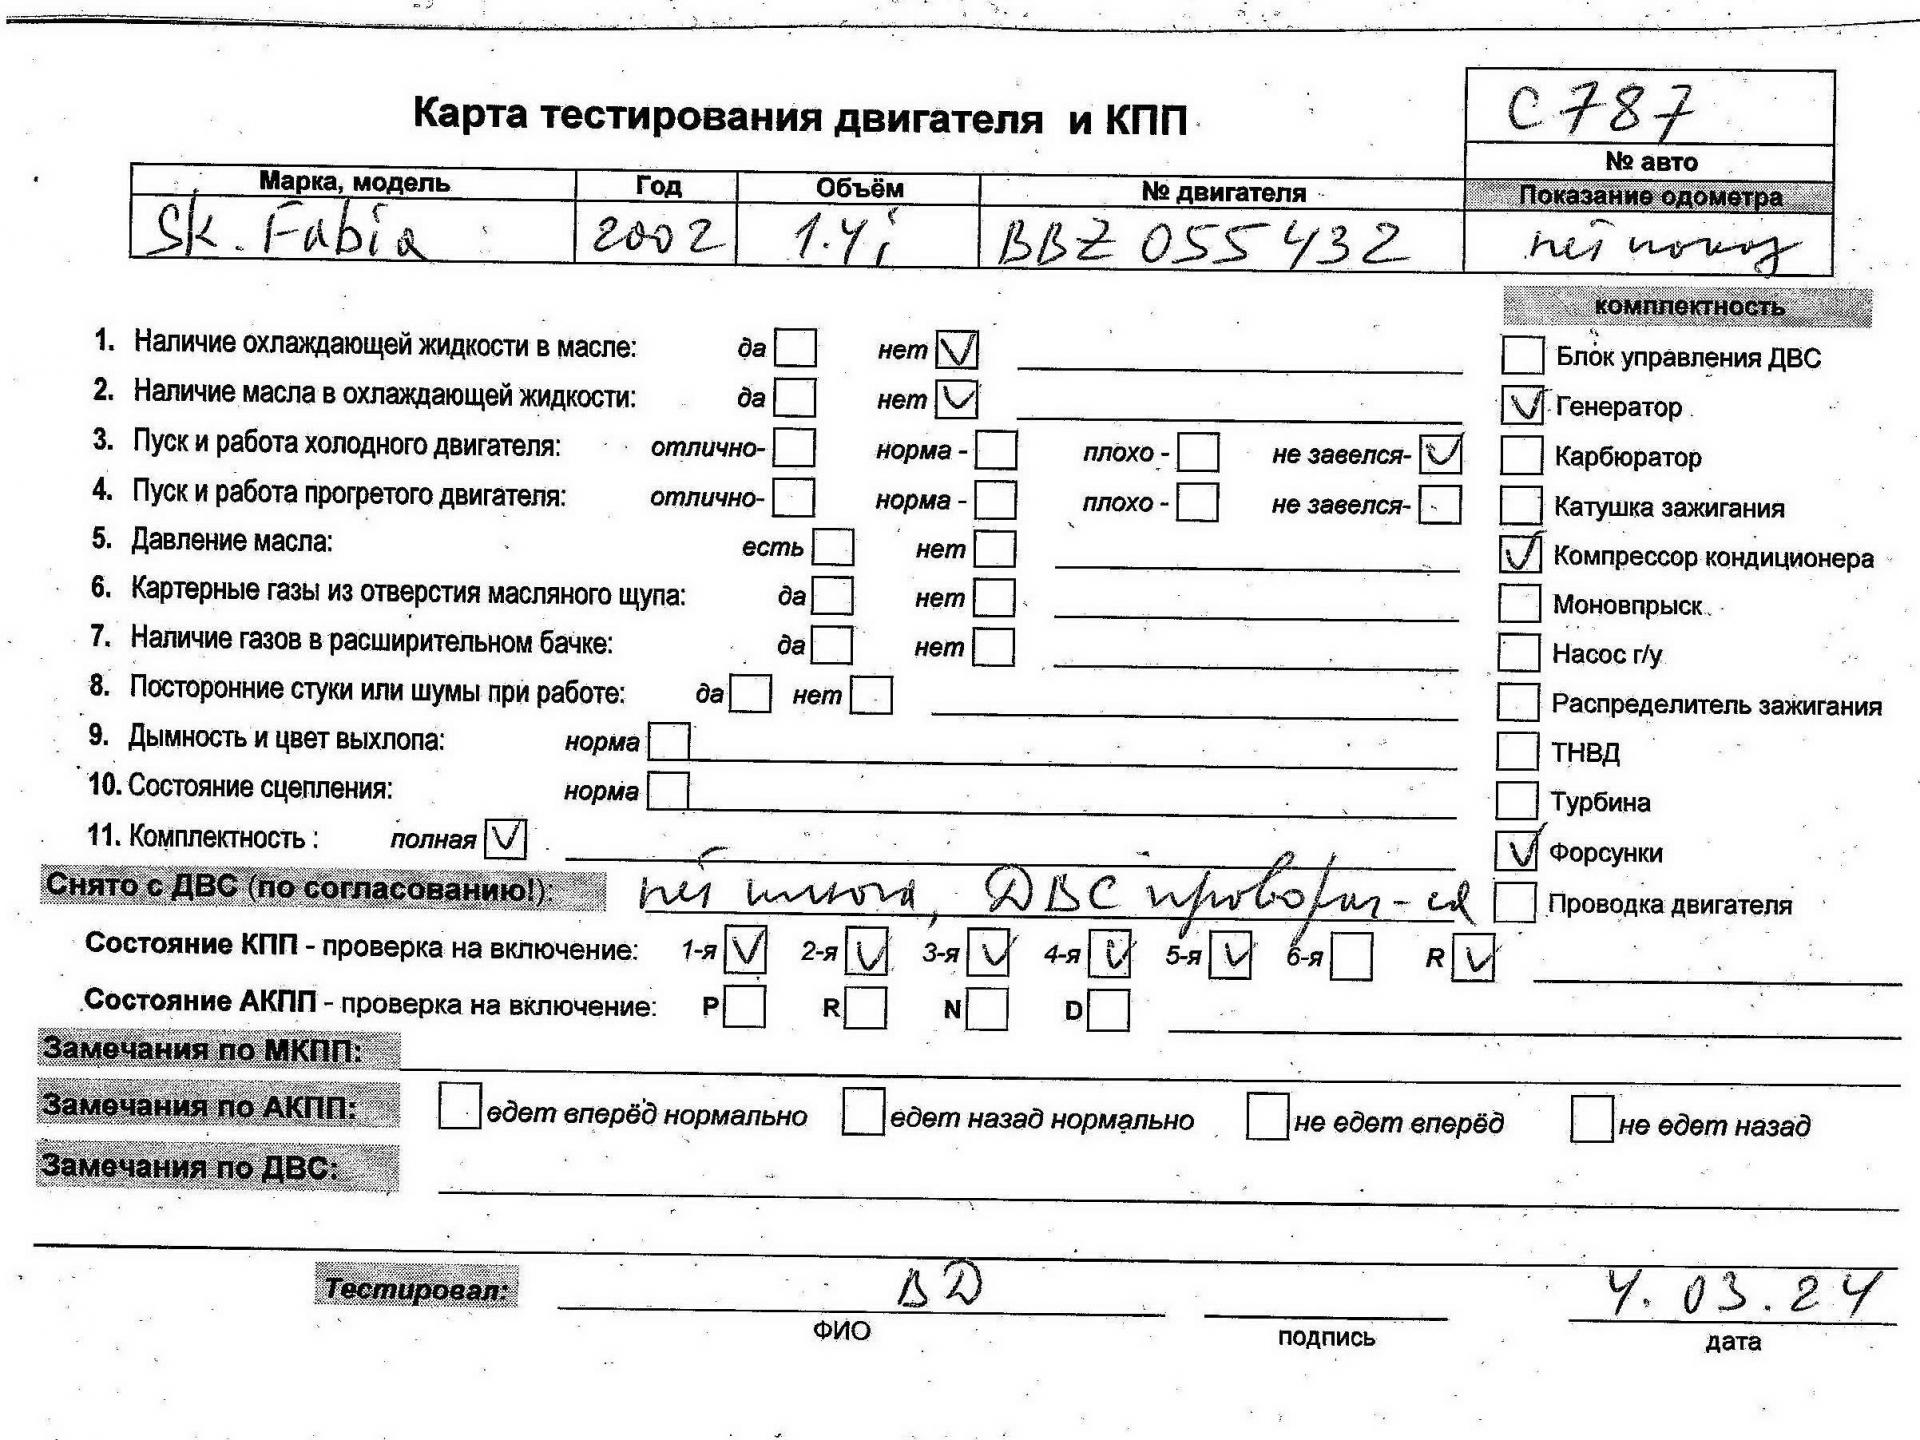 С787
Карта тестирования двигателя и КПП
№ авто
Марка, модель Год Объём № двигателя Показание одометра
Sk. Fabia 2002 1.4i BBZ 055432 нет показ
комплектность
1. Наличие охлаждающей жидкости в масле: да нет V Блок управления ДВС
2. Наличие масла в охлаждающей жидкости: да нет V V Генератор
3. Пуск и работа холодного двигателя: отлично- норма - плохо - не завелся- V Карбюратор
4. Пуск и работа прогретого двигателя: отлично- норма - плохо - не завелся- Катушка зажигания
5. Давление масла: есть нет V Компрессор кондиционера
6. Картерные газы из отверстия масляного щупа: да нет Моновпрыск
7. Наличие газов в расширительном бачке: да нет Насос г/у
8. Посторонние стуки или шумы при работе: да нет Распределитель зажигания
9. Дымность и цвет выхлопа: норма ТНВД
10. Состояние сцепления: норма Турбина
11. Комплектность : полная V V Форсунки
Снято с ДВС (по согласованию!): нет ключа, ДВС проворач-ся Проводка двигателя
Состояние КПП - проверка на включение: 1-я V 2-я V 3-я V 4-я V 5-я V 6-я R V
Состояние АКПП - проверка на включение: P R N D
Замечания по МКПП:
Замечания по АКПП: едет вперёд нормально едет назад нормально не едет вперёд не едет назад
Замечания по ДВС:
Тестировал: ВД 4.03.24
ФИО подпись дата